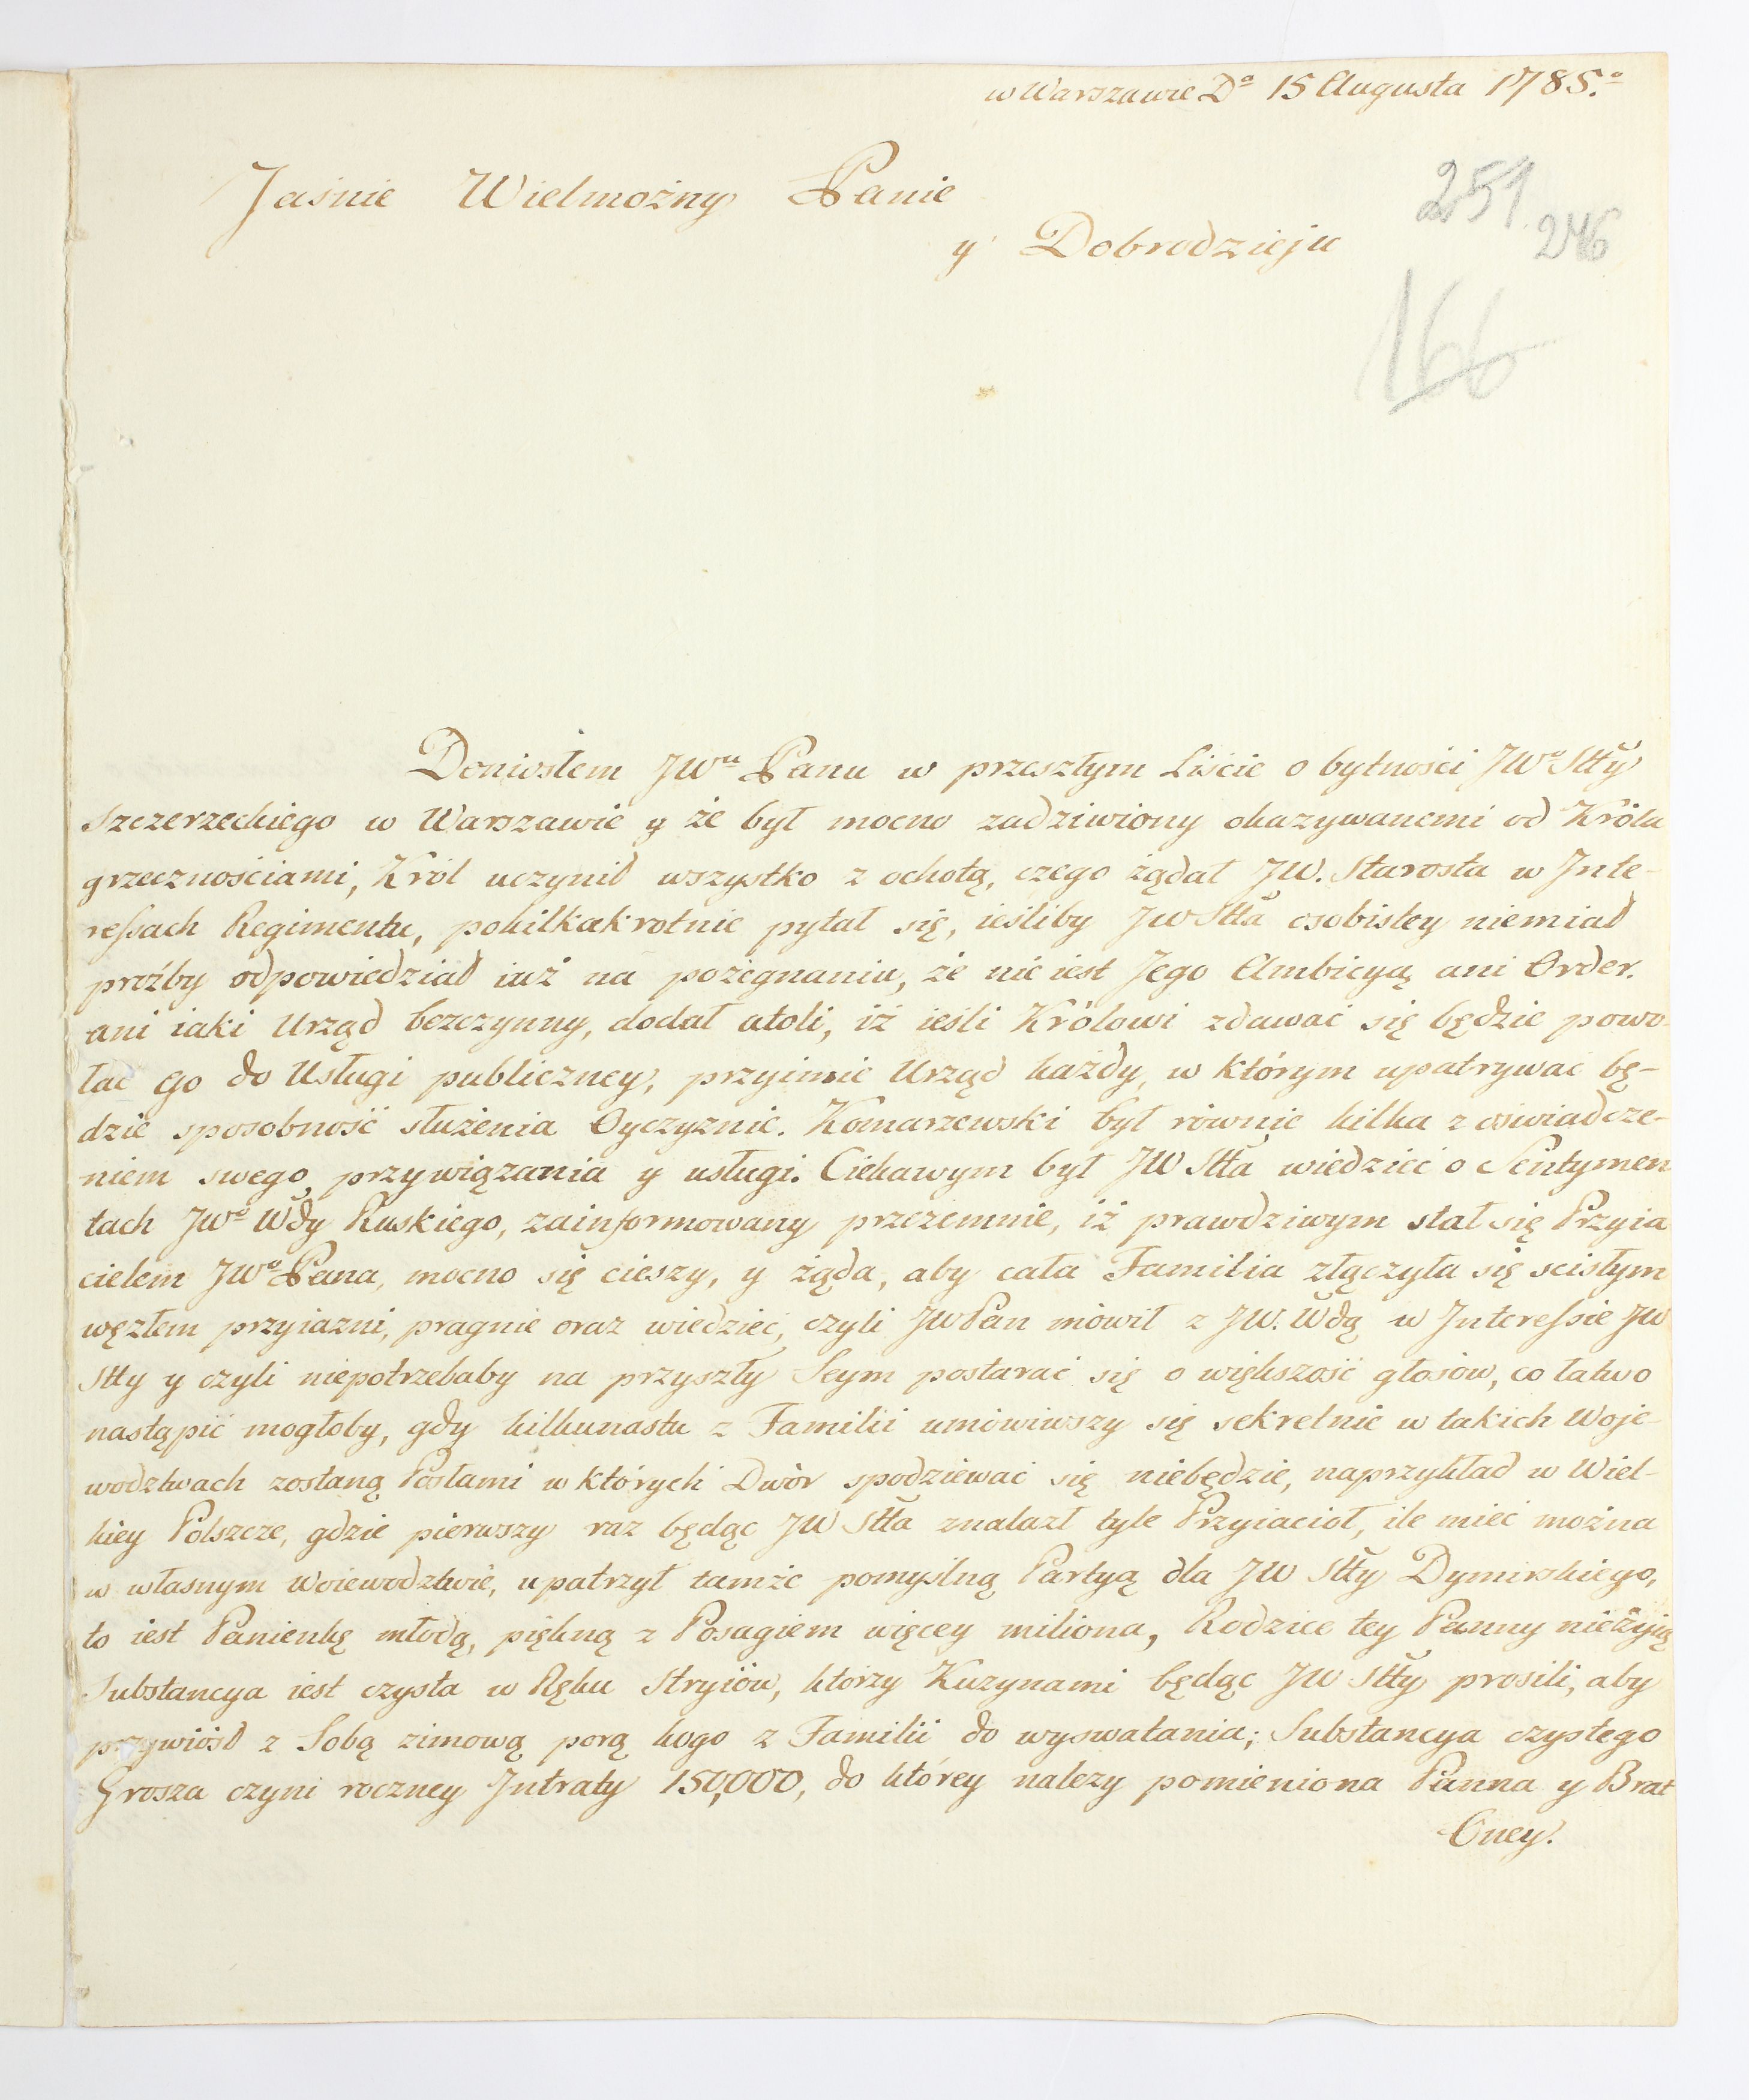 w Warszawie Dº 15 Augusta 1785.º
251
246
166
Jaśnie Wielmożny Panie
y Dobrodzieju
Doniosłem JWᵘ Panu w przeszłym Liście o bytności JWº Stty
Szczerzeckiego w Warszawie y że był mocno zadziwiony okazywanemi od Króla
grzecznościami, Król uczynił wszystko z ochotą, czego żądał JW. Starosta w Inte-
reſsach Regimentu, pokilkakrotnie pytał się, ieśliby JW Stta osobistey niemiał
proźby odpowiedział iuż na pożegnaniu, że nie iest Jego Ambicyą ani Order.
ani iaki Urząd bezczynny, dodał atoli, iż ieśli Królowi zdawać się będzie powo-
łać go do Usługi publiczney, przyimie Urząd każdy, w którym upatrywać bę-
dzie sposobność służenia Oyczyznie. Komarzewski był równie kilka z oświadcze-
niem swego przywiązania y usługi. Ciekawym był JW Stta wiedzieć o Sentymen
tach JWº Wdy Ruskiego, zainformowany przezemnie, iż prawdziwym stał się Przyia
cielem JWº Pana, mocno się cieszy, y żąda, aby cała Familia złączyła się scisłym
węzłem przyiazni, pragnie oraz wiedzieć, czyli JWPan mówił z JW. Wdą w Intereſsie JW
Stty y czyli niepotrzebaby na przyszły Seym postarać się o większość głosów, co łatwo
nastąpić mogłoby, gdy kilkunastu z Familii umówiwszy się sekretnie w takich Woje-
wodztwach zostaną Posłami w których Dwór spodziewać się niebędzie, naprzykład w Wiel-
kiey Polszcze, gdzie pierwszy raz będąc JW Stta znalazł tyle Przyiacioł, ile mieć można
w własnym Woiewodztwie, upatrzył tamże pomyslną Partyą dla JW Stty Dymirskiego,
to iest Panienkę młodą, piękną z Posagiem więcey miliona, Rodzice tey Panny nieżyią
Substancya iest czysta w Ręku Stryiów, ktorzy Kuzynami będąc JW Stty prosili, aby
przywiósł z Sobą zimową porą kogo z Familii do wyswatania; Substancya czystego
Grosza czyni roczney Intraty 150,000, do którey należy pomieniona Panna y Brat
Oney.